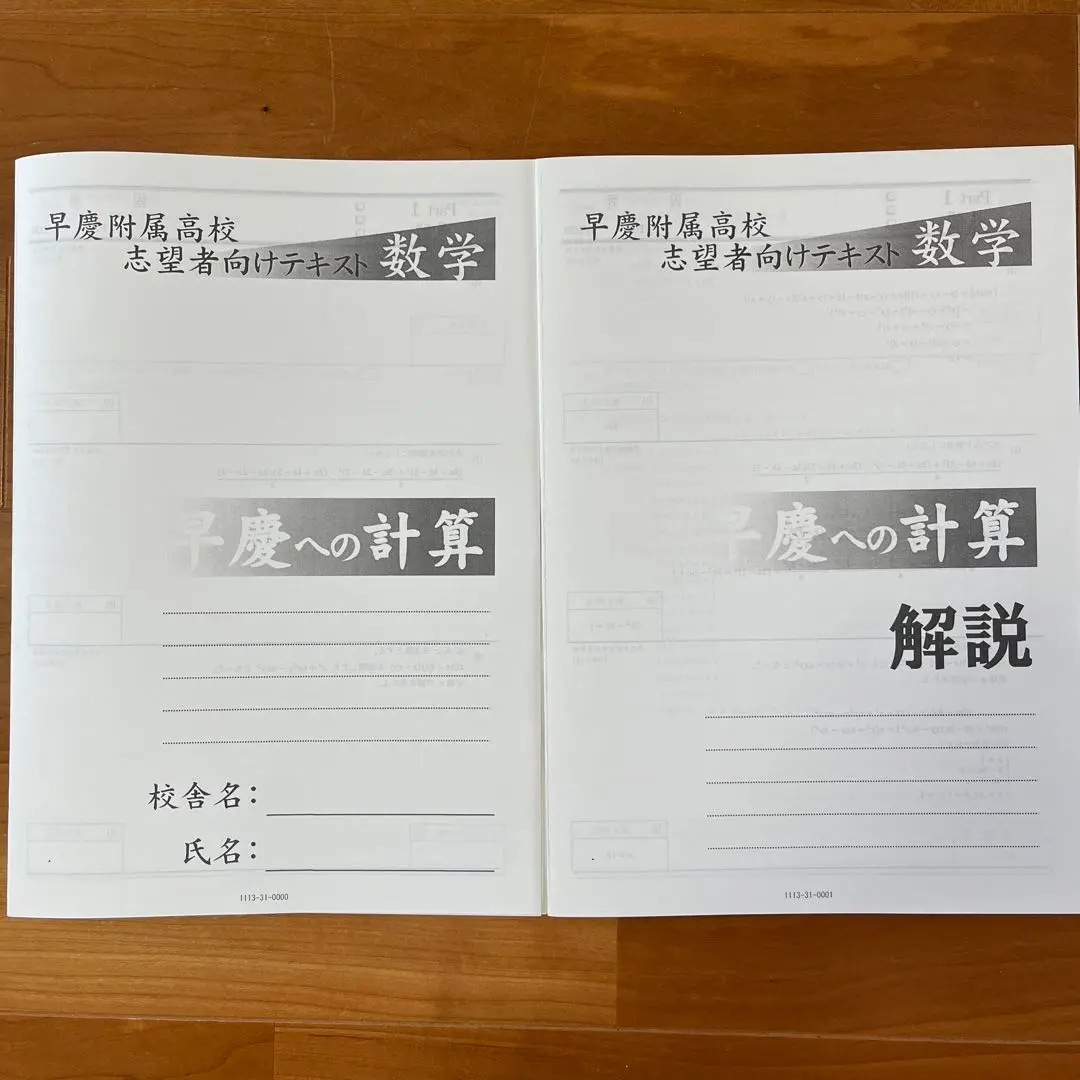 早慶附属高校
志望者向けテキスト 数学
早慶への計算
校舎名：
氏名：
1113-31-0000
早慶附属高校
志望者向けテキスト 数学
早慶への計算
解説
1113-31-0001